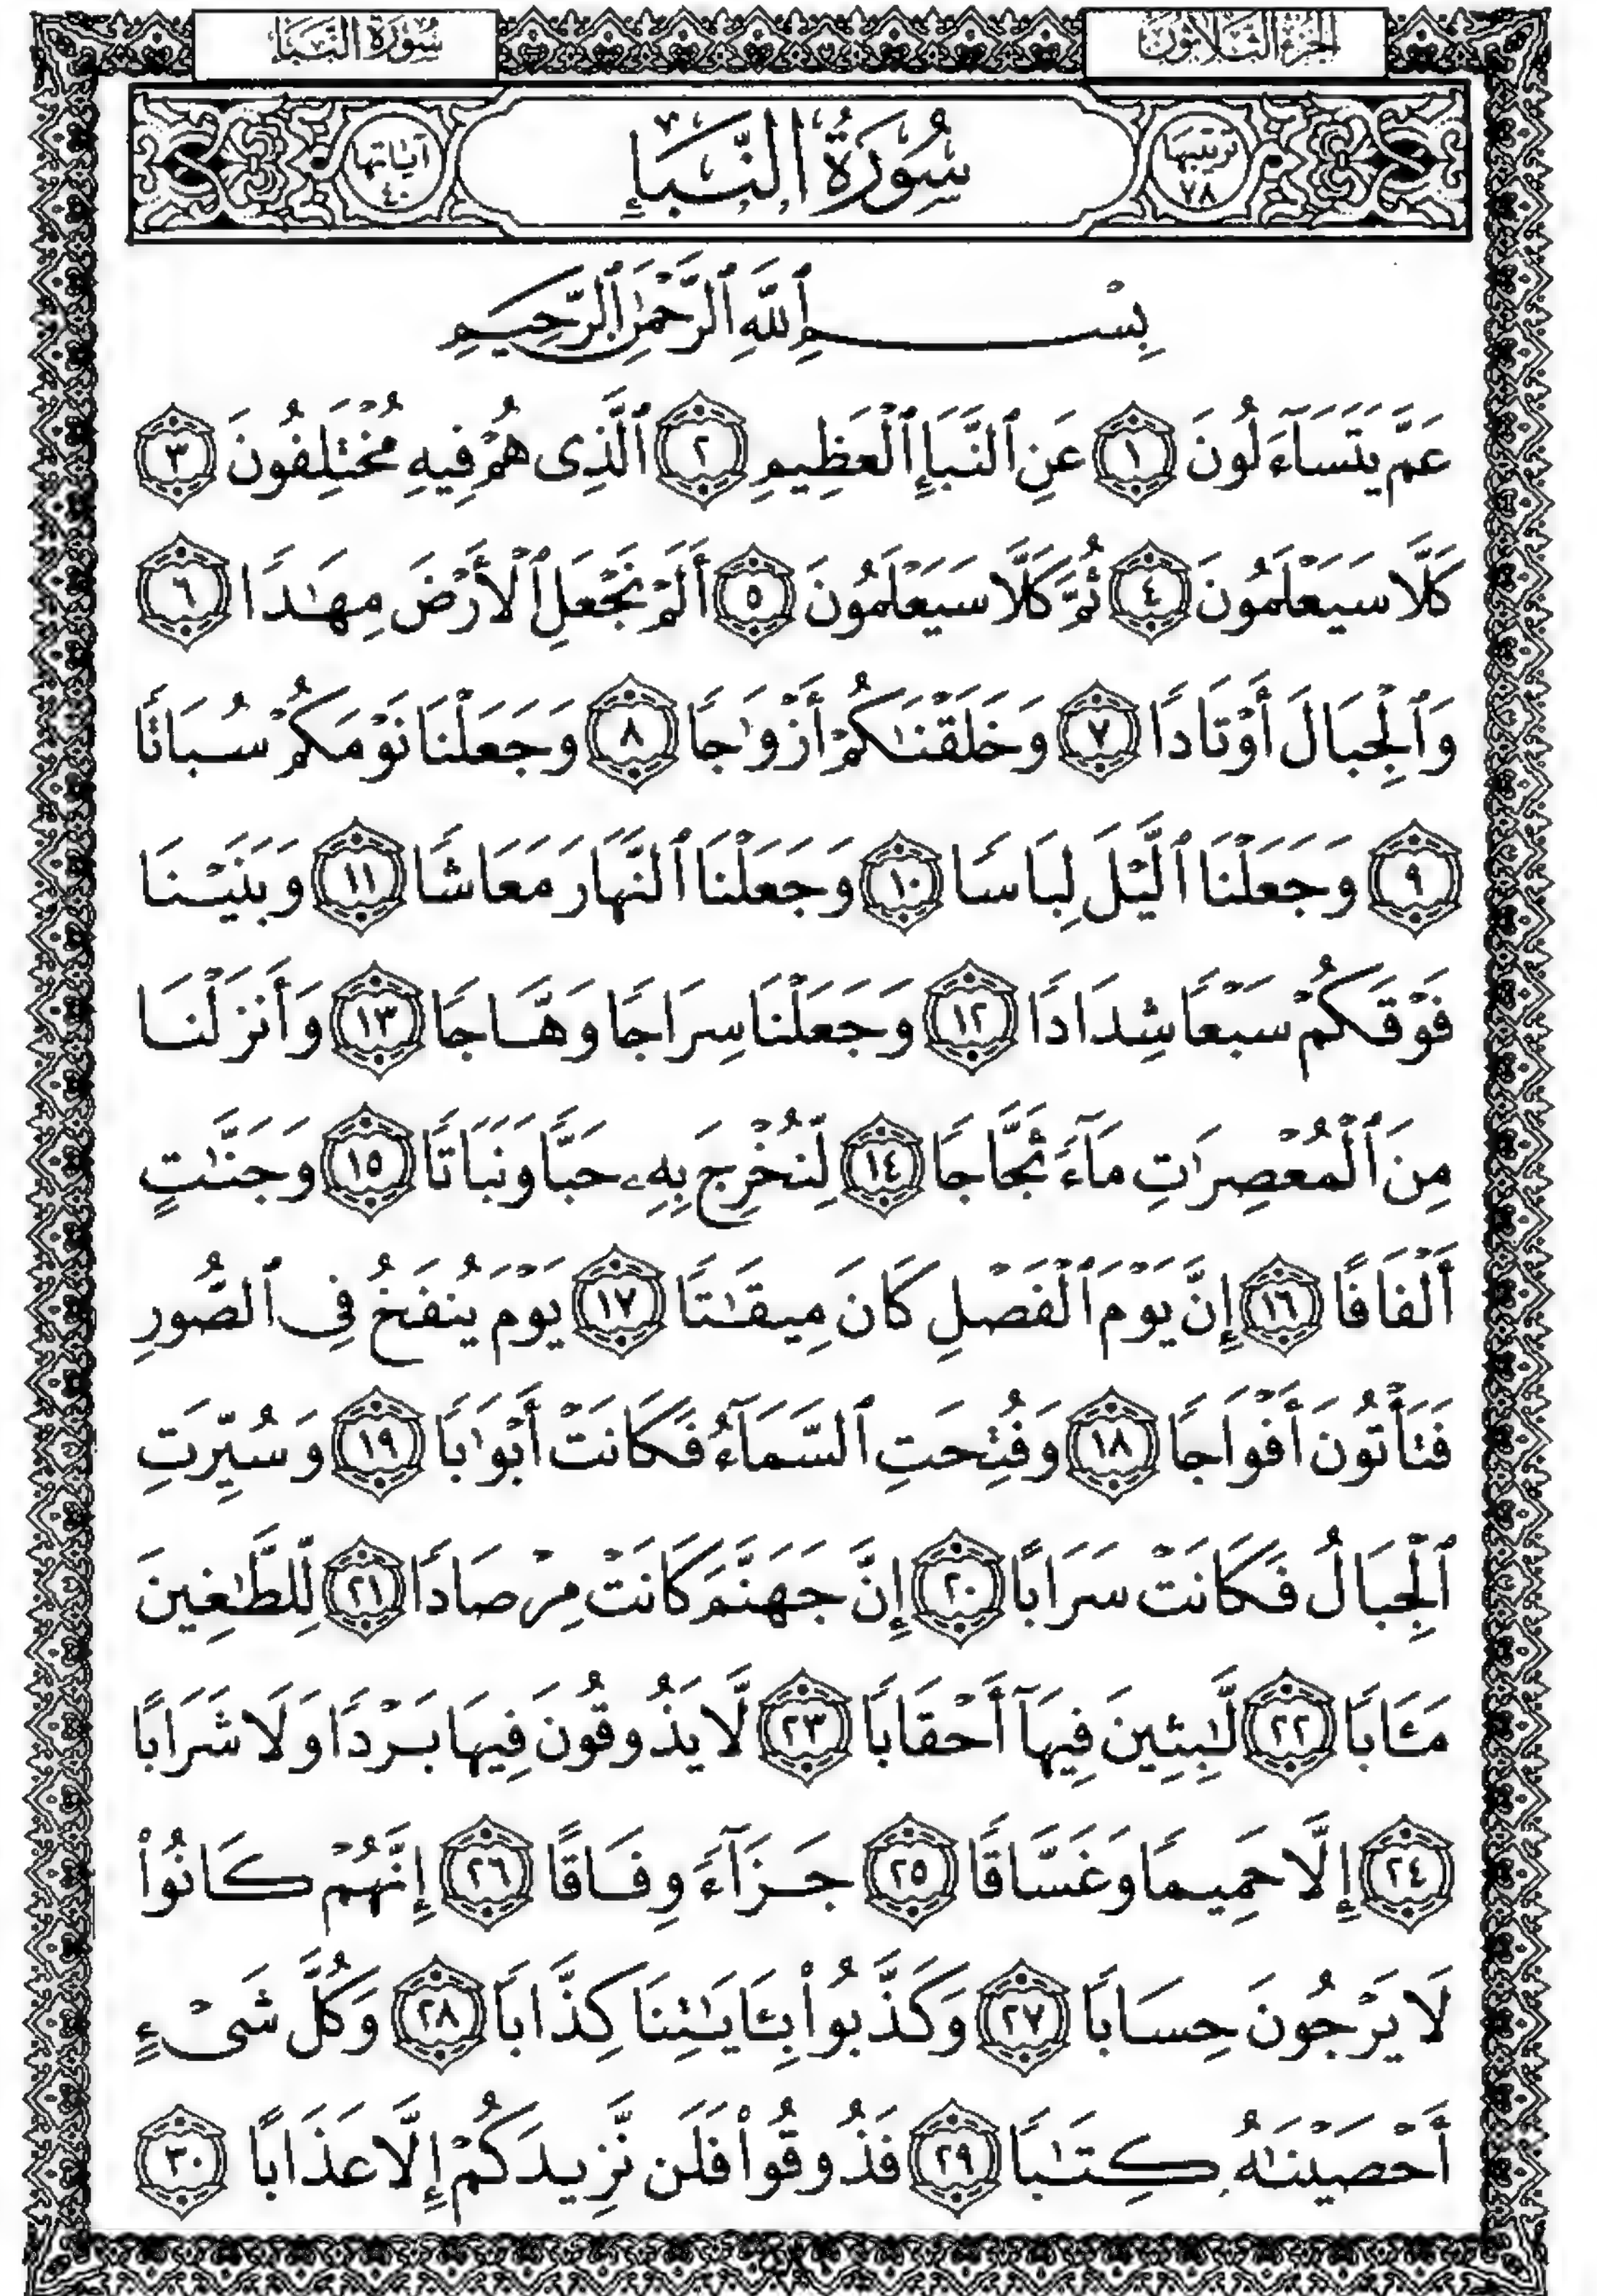 الجزء الثلاثون
سورة النبإ
ترتيبها
٧٨
سُورَةُ النَّبَإِ
آياتها
٤٠
بِسْمِ ٱللَّهِ ٱلرَّحْمَٰنِ ٱلرَّحِيمِ
عَمَّ يَتَسَآءَلُونَ ١ عَنِ ٱلنَّبَإِ ٱلْعَظِيمِ ٢ ٱلَّذِى هُمْ فِيهِ مُخْتَلِفُونَ ٣
كَلَّا سَيَعْلَمُونَ ٤ ثُمَّ كَلَّا سَيَعْلَمُونَ ٥ أَلَمْ نَجْعَلِ ٱلْأَرْضَ مِهَٰدًا ٦
وَٱلْجِبَالَ أَوْتَادًا ٧ وَخَلَقْنَٰكُمْ أَزْوَٰجًا ٨ وَجَعَلْنَا نَوْمَكُمْ سُبَاتًا
٩ وَجَعَلْنَا ٱلَّيْلَ لِبَاسًا ١٠ وَجَعَلْنَا ٱلنَّهَارَ مَعَاشًا ١١ وَبَنَيْنَا
فَوْقَكُمْ سَبْعًا شِدَادًا ١٢ وَجَعَلْنَا سِرَاجًا وَهَّاجًا ١٣ وَأَنزَلْنَا
مِنَ ٱلْمُعْصِرَٰتِ مَآءً ثَجَّاجًا ١٤ لِّنُخْرِجَ بِهِۦ حَبًّا وَنَبَاتًا ١٥ وَجَنَّٰتٍ
أَلْفَافًا ١٦ إِنَّ يَوْمَ ٱلْفَصْلِ كَانَ مِيقَٰتًا ١٧ يَوْمَ يُنفَخُ فِى ٱلصُّورِ
فَتَأْتُونَ أَفْوَاجًا ١٨ وَفُتِحَتِ ٱلسَّمَآءُ فَكَانَتْ أَبْوَٰبًا ١٩ وَسُيِّرَتِ
ٱلْجِبَالُ فَكَانَتْ سَرَابًا ٢٠ إِنَّ جَهَنَّمَ كَانَتْ مِرْصَادًا ٢١ لِّلطَّٰغِينَ
مَـَٔابًا ٢٢ لَّٰبِثِينَ فِيهَآ أَحْقَابًا ٢٣ لَّا يَذُوقُونَ فِيهَا بَرْدًا وَلَا شَرَابًا
٢٤ إِلَّا حَمِيمًا وَغَسَّاقًا ٢٥ جَزَآءً وِفَاقًا ٢٦ إِنَّهُمْ كَانُوا۟
لَا يَرْجُونَ حِسَابًا ٢٧ وَكَذَّبُوا۟ بِـَٔايَٰتِنَا كِذَّابًا ٢٨ وَكُلَّ شَىْءٍ
أَحْصَيْنَٰهُ كِتَٰبًا ٢٩ فَذُوقُوا۟ فَلَن نَّزِيدَكُمْ إِلَّا عَذَابًا ٣٠